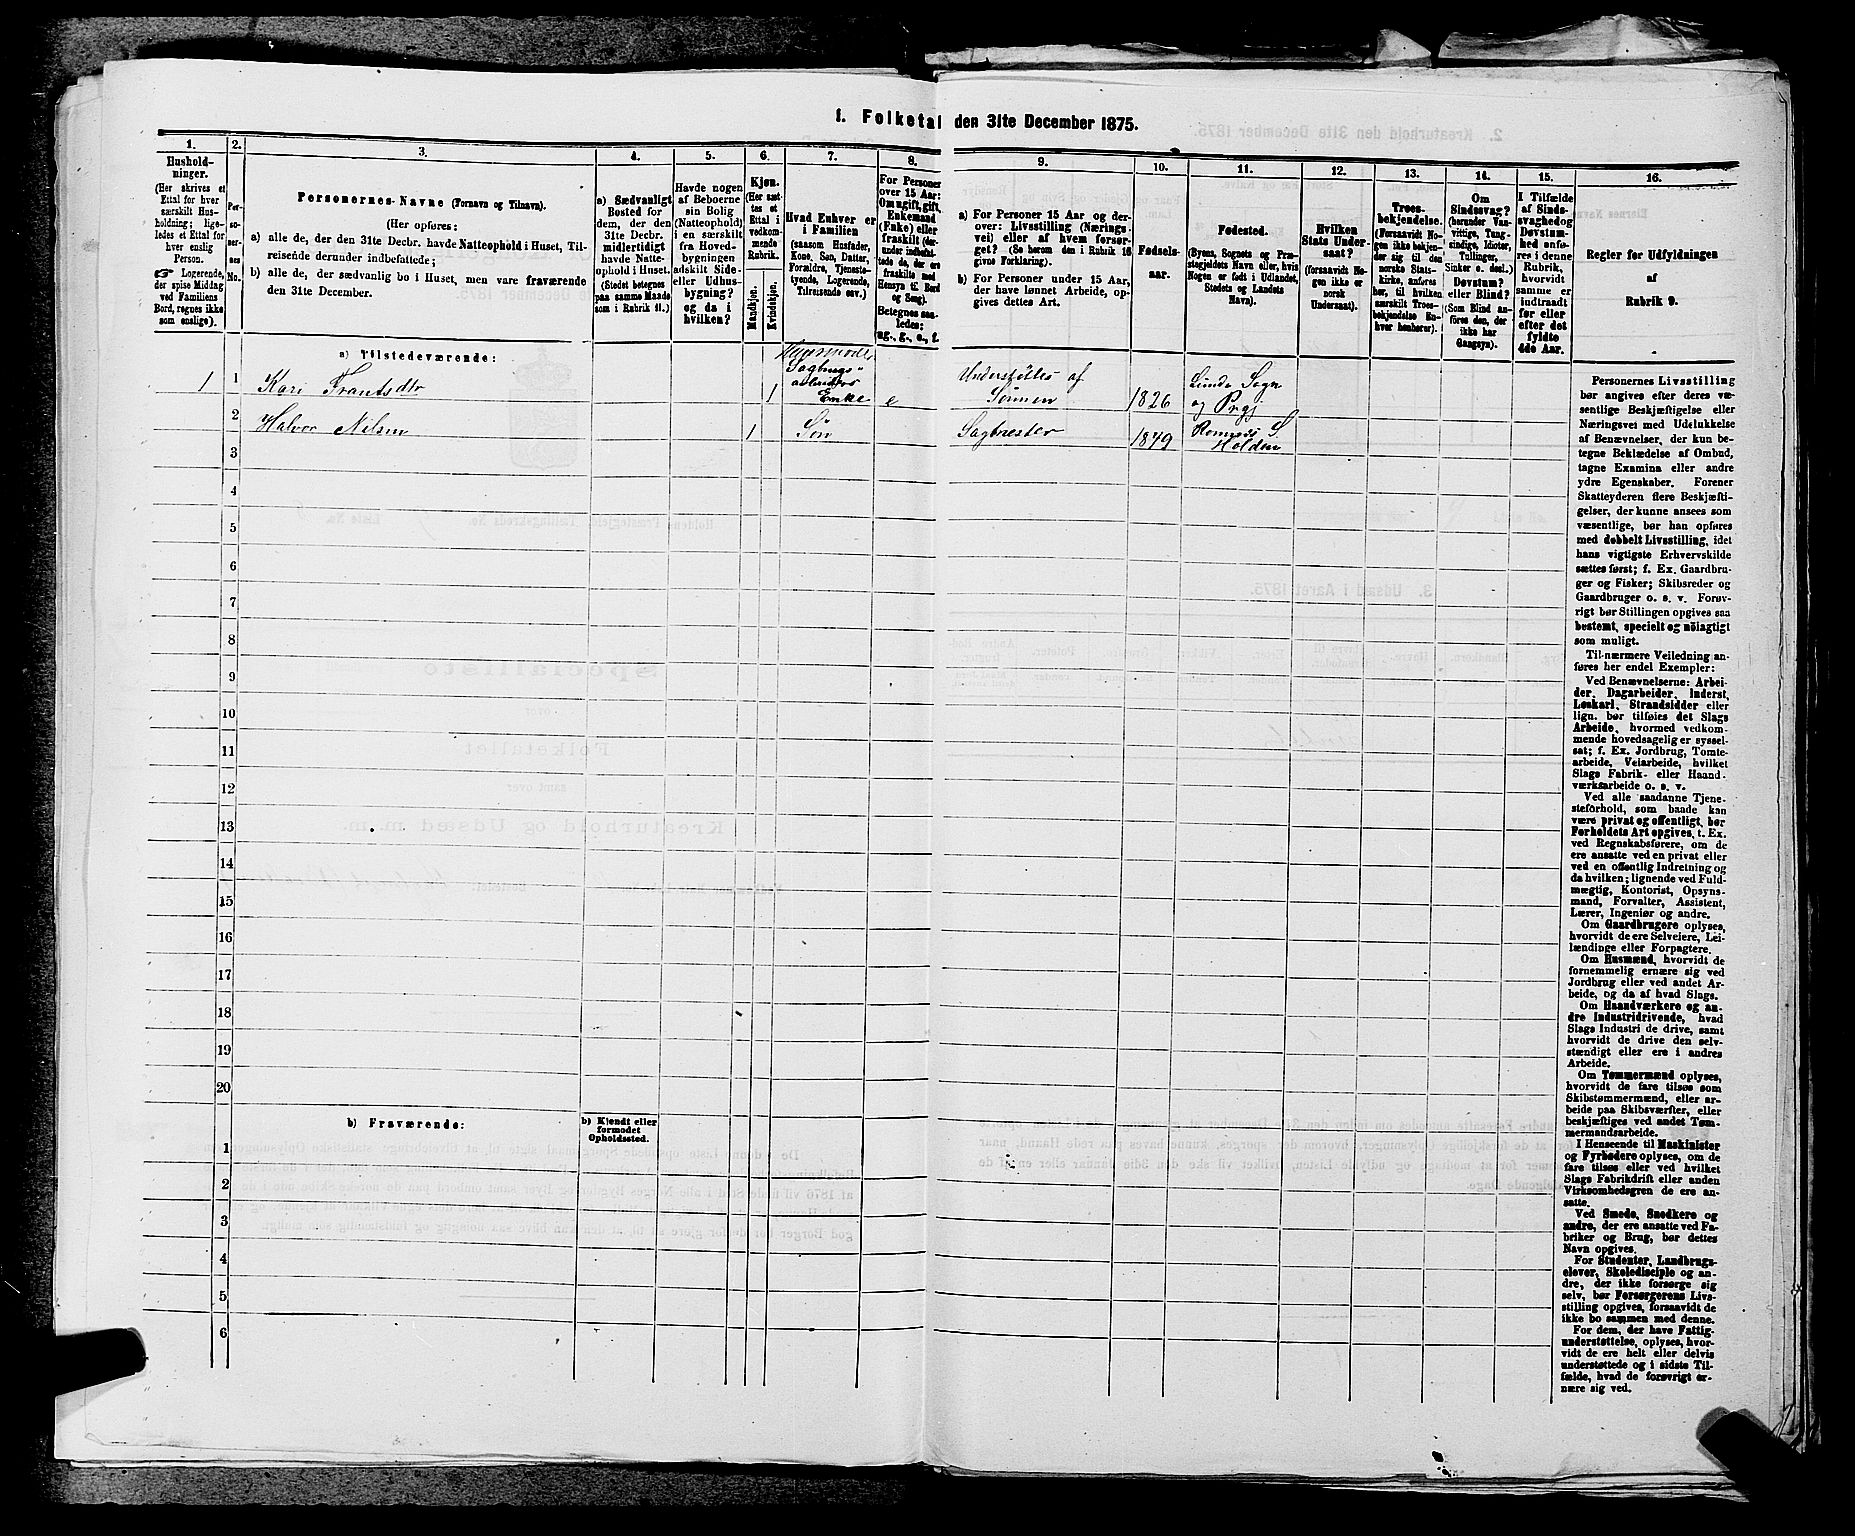 1. Folketal den 31te December 1875.
1.
Hushold-
ninger.
(Her skrives et
Ettal for hver
særskilt Hus-
holdning; lige-
ledes et Ettal for
hver enslig
Person.
Logerende,
der spise Middag
ved Familiens
Bord, regnes ikke
som enslige).
2.
Per-
so-
ner-
nes
No.
3.
Personernes Navne (Fornavn og Tilnavn).
(Her opføres:
a) alle de, der den 31te Decbr. havde Natteophold i Huset, Til-
reisende derunder indbefattede;
b) alle de, der sædvanlig bo i Huset, men vare fraværende
den 31te December.
4.
a) Sædvanligt
Bosted for
dem, der den
31te Decbr.
midlertidigt
havde Natte-
ophold i Huset.
(Stedet betegnes
paa samme Maade
som i Rubrik 11.)
5.
Havde nogen
af Beboerne
sin Bolig
(Natteophold)
i en særskilt
fra Hoved-
bygningen
adskilt Side-
eller Udhus-
bygning?
og da i
hvilken?
6.
Kjøn.
(Her sæt-
tes et
Ettal i
vedkom-
mende
Rubrik.
Mandkjøn.
Kvindekjøn.
7.
Hvad Enhver er
i Familien
(saasom Husfader,
Kone, Søn, Datter,
Forældre, Tjeneste-
tyende, Logerende,
Tilreisende osv.)
8.
For Personer
over 15 Aar:
Om ugift, gift,
Enkemand
(Enke) eller
fraskilt (der-
under indbefat-
tede de, der ere
fraskilte med
Hensyn til Bord
og Seng).
Betegnes saa-
ledes:
ug., g., e., f.
9.
a) For Personer 15 Aar og der-
over: Livsstilling (Nærings-
vei) eller af hvem forsør-
get? (Se herom den i Rubrik 16
givne Forklaring).
b) For Personer under 15 Aar,
der have lønnet Arbeide, op-
gives dettes Art.
10.
Fødsels-
aar.
11.
Fødested.
(Byens, Sognets og Præ-
stegjeldets Navn eller, hvis
Nogen er født i Udlandet,
Stedets og Landets
Navn).
12.
Hvilken
Stats Under-
saat?
(forsaavidt No-
gen ikke er
norsk
Undersaat).
13.
Troes-
bekjendelse.
(Forsaavidt No-
gen ikke bekjen-
der sig til den
norske Stats-
kirke, anføres
her, til hvilken
særskilt Troes-
bekjendelse En-
hver henhører).
14.
Om
Sindssvag?
(herunder Van-
vittige, Tung-
sindige, Idioter,
Tullinger,
Sinker o. desl.)
Døvstum?
eller Blind?
(Som Blind an-
føres den, der
ikke har
Gangsyn).
15.
I Tilfælde
af Sinds-
svaghed og
Døvstum-
hed anfø-
res i denne
Rubrik,
hvorvidt
samme er
indtraadt
før eller
efter det
fyldte
4de Aar.
16.
Regler for Udfyldningen
af
Rubrik 9.
a) Tilstedeværende:
1 1 Kari Frantsdtr 1
Sagbrugs-
arbeiders
Enke e Understøttes af
Sønnen 1826 Lunde Sogn
og Prgj
2 Halvor Nilsen 1 Søn Sagmester 1849 S.
Holden
3
4
5
6
7
8
9
10
11
12
13
14
15
16
17
18
19
20
b) Fraværende:
b) Kjendt eller
formodet
Opholdssted.
1
2
3
4
5
6
Personernes Livsstilling
bør angives efter deres væ-
sentlige Beskjæftigelse eller
Næringsvei med Udelukkelse
af Benævnelser, der kun be-
tegne Beklædelse af Ombud,
tagne Examina eller andre
ydre Egenskaber. Forener
Skatteyderen flere Beskjæfti-
gelser, der kunne ansees som
væsentlige, bør han opføres
med dobbelt Livsstilling, idet
hans vigtigste Erhvervskilde
sættes først; f. Ex. Gaardbru-
ger og Fisker; Skibsreder og
Gaardbruger o. s. v. Forøv-
rigt bør Stillingen opgives saa
bestemt, specielt og nöiagtigt
som muligt.
Til nærmere Veiledning an-
føres her endel Exempler:
Ved Benævnelserne: Arbei-
der, Dagarbeider, Inderst,
Løskarl, Strandsidder eller
lign. bør tilføies det Slags
Arbeide, hvormed vedkom-
mende hovedsagelig er syssel-
sat; f. Ex. Jordbrug, Tomte-
arbeide, Veiarbeide, hvilket
Slags Fabrik- eller Haand-
værksarbeide o. s. v.
Ved alle saadanne Tjene-
steforhold, som baade kan
være privat og offentligt, bør
Forholdets Art opgives, t. Ex.
ved Regnskabsførere, om de
ere ansatte ved en privat eller
ved en offentlig Indretning og
da hvilken; lignende ved Fuld-
mægtig, Kontorist, Opsyns-
mand, Forvalter, Assistent,
Lærer, Ingeniør og andre.
Om Gaardbrugere oplyses,
hvorvidt de ere Selveiere, Lei-
lændinge eller Forpagtere.
Om Husmænd, hvorvidt de
fornemmelig ernære sig ved
Jordbrug eller ved andet Ar-
beide, og da af hvad Slags.
Om Haandværkere og an-
dre Industridrivende, hvad
Slags Industri de drive, samt
hvorvidt de drive den selv-
stændigt eller ere i andres
Arbeide.
Om Tømmermænd oplyses,
hvorvidt de fare tilsøs som
Skibstømmermænd, eller ar-
beide paa Skibsværfter, eller
beskjæftiges ved andet Tøm-
mermandsarbeide.
I Henseende til Maskinister
og Fyrbødere oplyses, om de
fare tilsøs eller ved hvilket
Slags Fabrikdrift eller anden
Virksomhedsgren de ere an-
satte.
Ved Smede, Snedkere og
andre, der ere ansatte ved Fa-
briker og Brug, bør dettes
Navn opgives.
For Studenter, Landbrugs-
elever, Skoledisciple og an-
dre, der ikke forsørge sig
selv, bør Forsørgerens Livs-
stilling opgives, forsaavidt de
ikke bo sammen med denne.
For dem, der have Fattig-
understøttelse, oplyses, hvor-
vidt de ere helt eller delvis
understøttede og i sidste Til-
fælde, hvad de forøvrigt er-
nære sig ved.